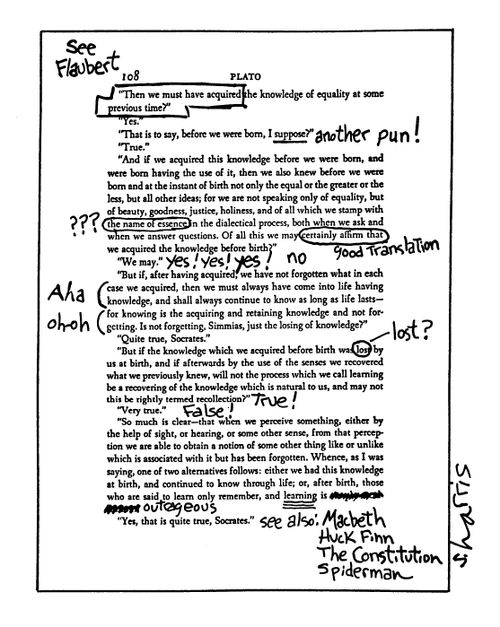 See
Flaubert
108 PLATO
"Then we must have acquired the knowledge of equality at some
previous time?"
"Yes."
"That is to say, before we were born, I suppose?" another pun!
"True."
"And if we acquired this knowledge before we were born, and
were born having the use of it, then we also knew before we were
born and at the instant of birth not only the equal or the greater or the
less, but all other ideas; for we are not speaking only of equality, but
of beauty, goodness, justice, holiness, and of all which we stamp with
??? the name of essence in the dialectical process, both when we ask and
when we answer questions. Of all this we may certainly affirm that
we acquired the knowledge before birth?" good Translation
"We may." yes! yes! yes! no
"But if, after having acquired, we have not forgotten what in each
Aha case we acquired, then we must always have come into life having
knowledge, and shall always continue to know as long as life lasts—
oh-oh for knowing is the acquiring and retaining knowledge and not for-
getting. Is not forgetting, Simmias, just the losing of knowledge?"
"Quite true, Socrates." lost?
"But if the knowledge which we acquired before birth was lost by
us at birth, and if afterwards by the use of the senses we recovered
what we previously knew, will not the process which we call learning
be a recovering of the knowledge which is natural to us, and may not
this be rightly termed recollection?" True!
"Very true." False!
"So much is clear—that when we perceive something, either by
the help of sight, or hearing, or some other sense, from that percep-
tion we are able to obtain a notion of some other thing like or unlike
which is associated with it but has been forgotten. Whence, as I was
saying, one of two alternatives follows: either we had this knowledge
at birth, and continued to know through life; or, after birth, those
who are said to learn only remember, and learning is
outrageous
"Yes, that is quite true, Socrates." see also: Macbeth
Huck Finn
The Constitution
Spiderman